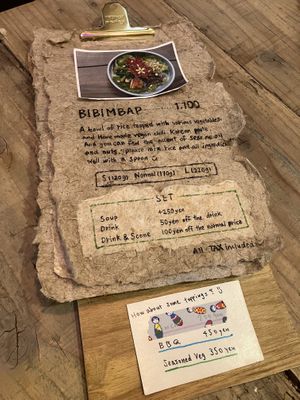 BIBIMBAP 1.100
A bowl of rice topped with various vegetables
and Home made vegan chili Korean paste
And you can feel the accent of sesame oil
and nuts. please mix rice and all ingredients
well with a spoon
S (120g) Normal (170g) L (220g)
SET
Soup +250yen
Drink 50yen off the drink
Drink & Scone 100yen off the normal price
All TAX included
How about some toppings?
BBQ 450yen
Seasoned Veg 350yen